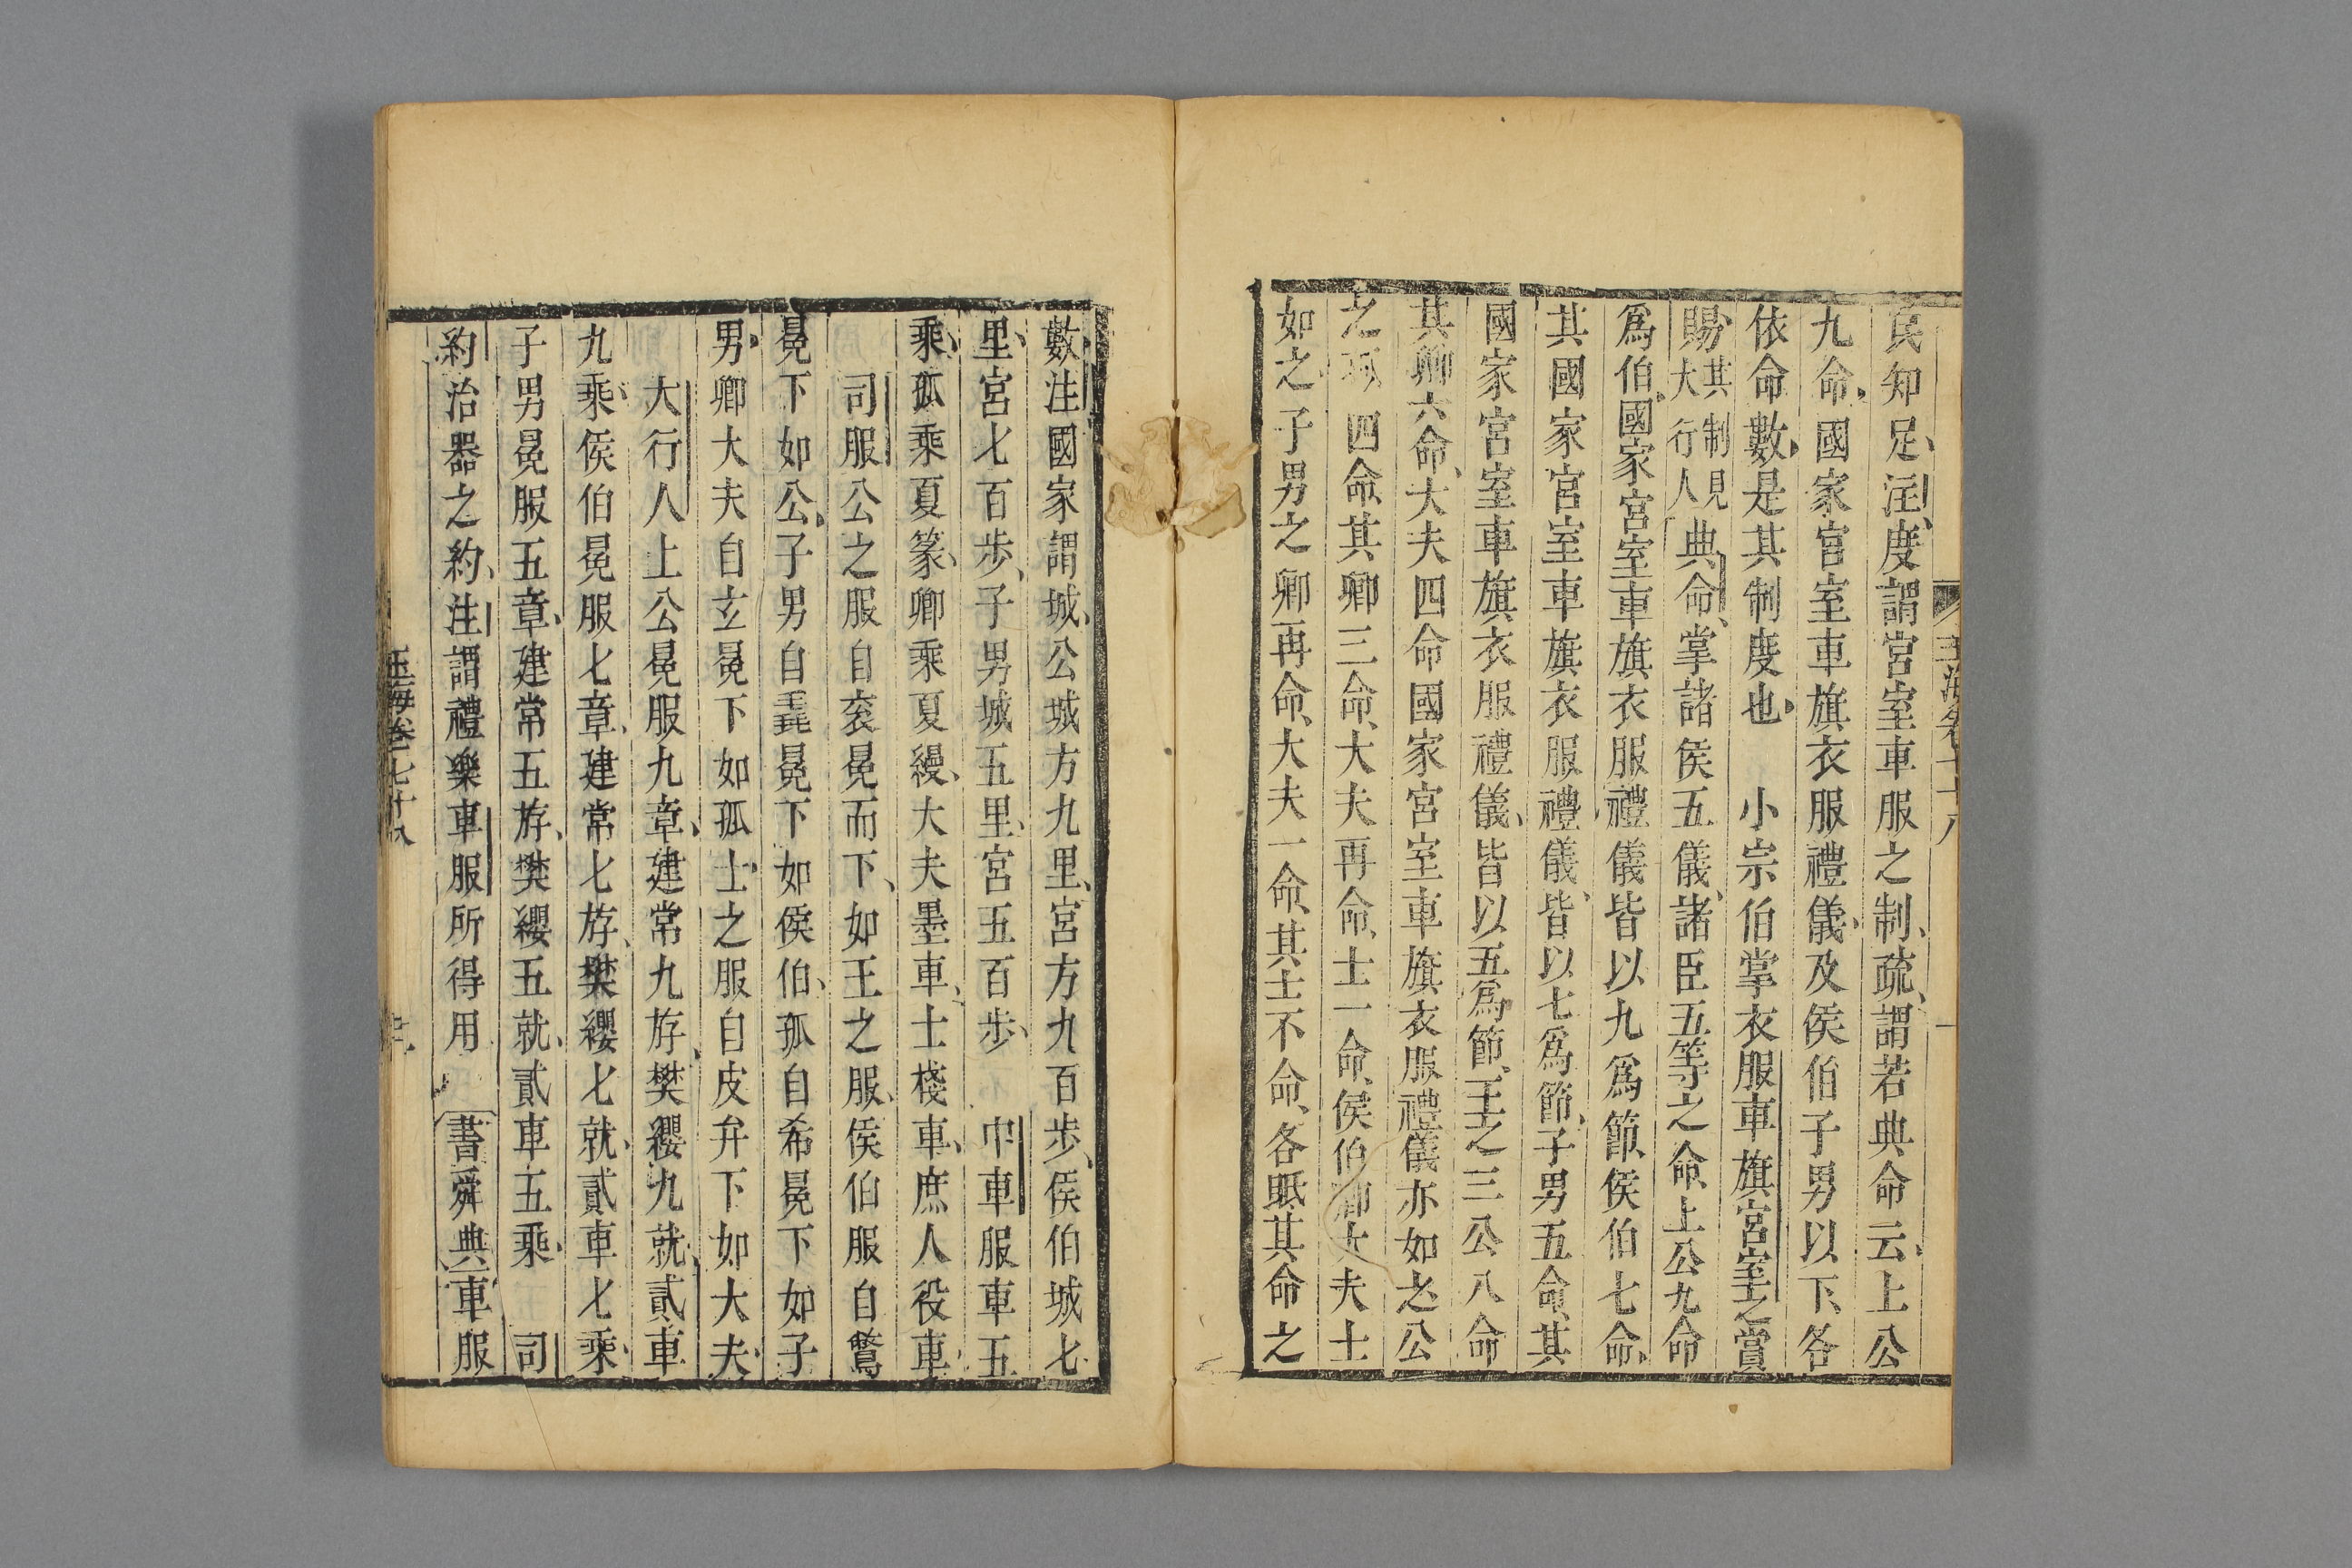 民知足注度謂宮室車服之制疏謂若典命云上公
九命國家宮室車旗衣服禮儀及侯伯子男以下各
依命數是其制度也 小宗伯掌衣服車旗宮室之賞
賜其制見大行人典命掌諸侯五儀諸臣五等之命上公九命
爲伯國家宮室車旗衣服禮儀皆以九爲節侯伯七命
其國家宮室車旗衣服禮儀皆以七爲節子男五命其
國家宮室車旗衣服禮儀皆以五爲節王之三公八命
其卿六命大夫四命國家宮室車旗衣服禮儀亦如之公
之孤四命其卿三命大夫再命士一命侯伯卿大夫士
如之子男之卿再命大夫一命其士不命各眡其命之
數注國家謂城公城方九里宮方九百步侯伯城七
里宮七百步子男城五里宮五百步 巾車服車五
乘孤乘夏篆卿乘夏縵大夫墨車士棧車庶人役車
司服公之服自袞冕而下如王之服侯伯服自鷩
冕下如公子男自毳冕下如侯伯孤自希冕下如子
男卿大夫自玄冕下如孤士之服自皮弁下如大夫
大行人上公冕服九章建常九斿樊纓九就貳車
九乘侯伯冕服七章建常七斿樊纓七就貳車七乘
子男冕服五章建常五斿樊纓五就貳車五乘 司
約治器之約注謂禮樂車服所得用 書舜典車服
玉海卷七十八